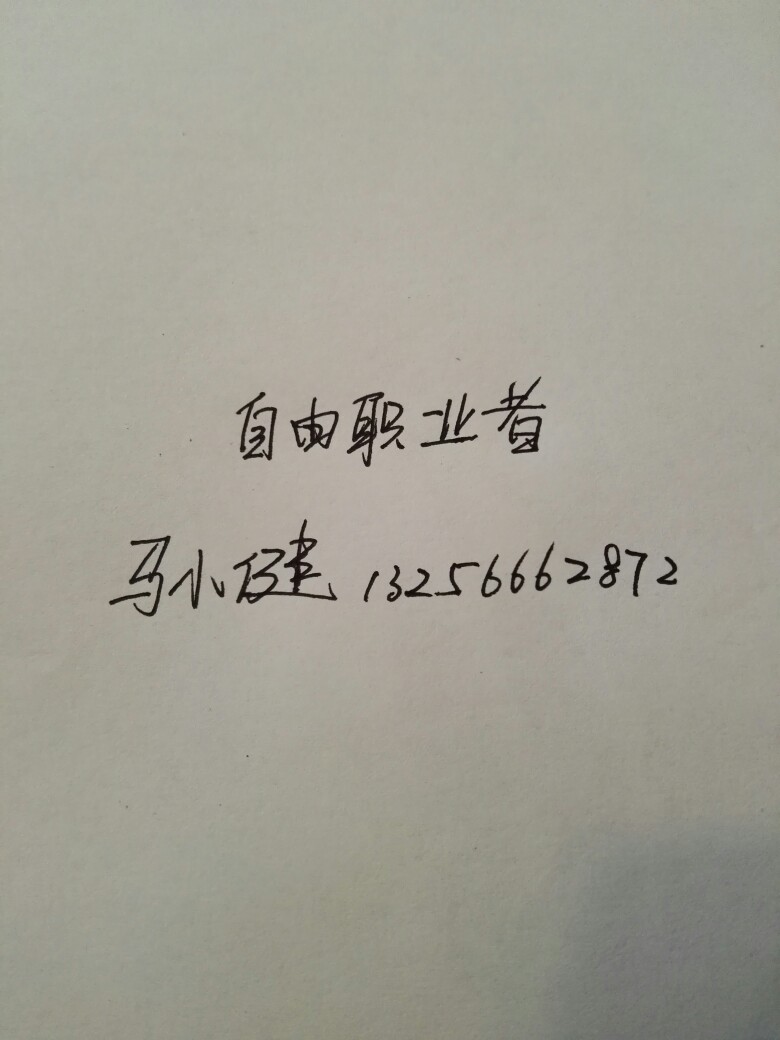 自由职业者
马小健 13256662872